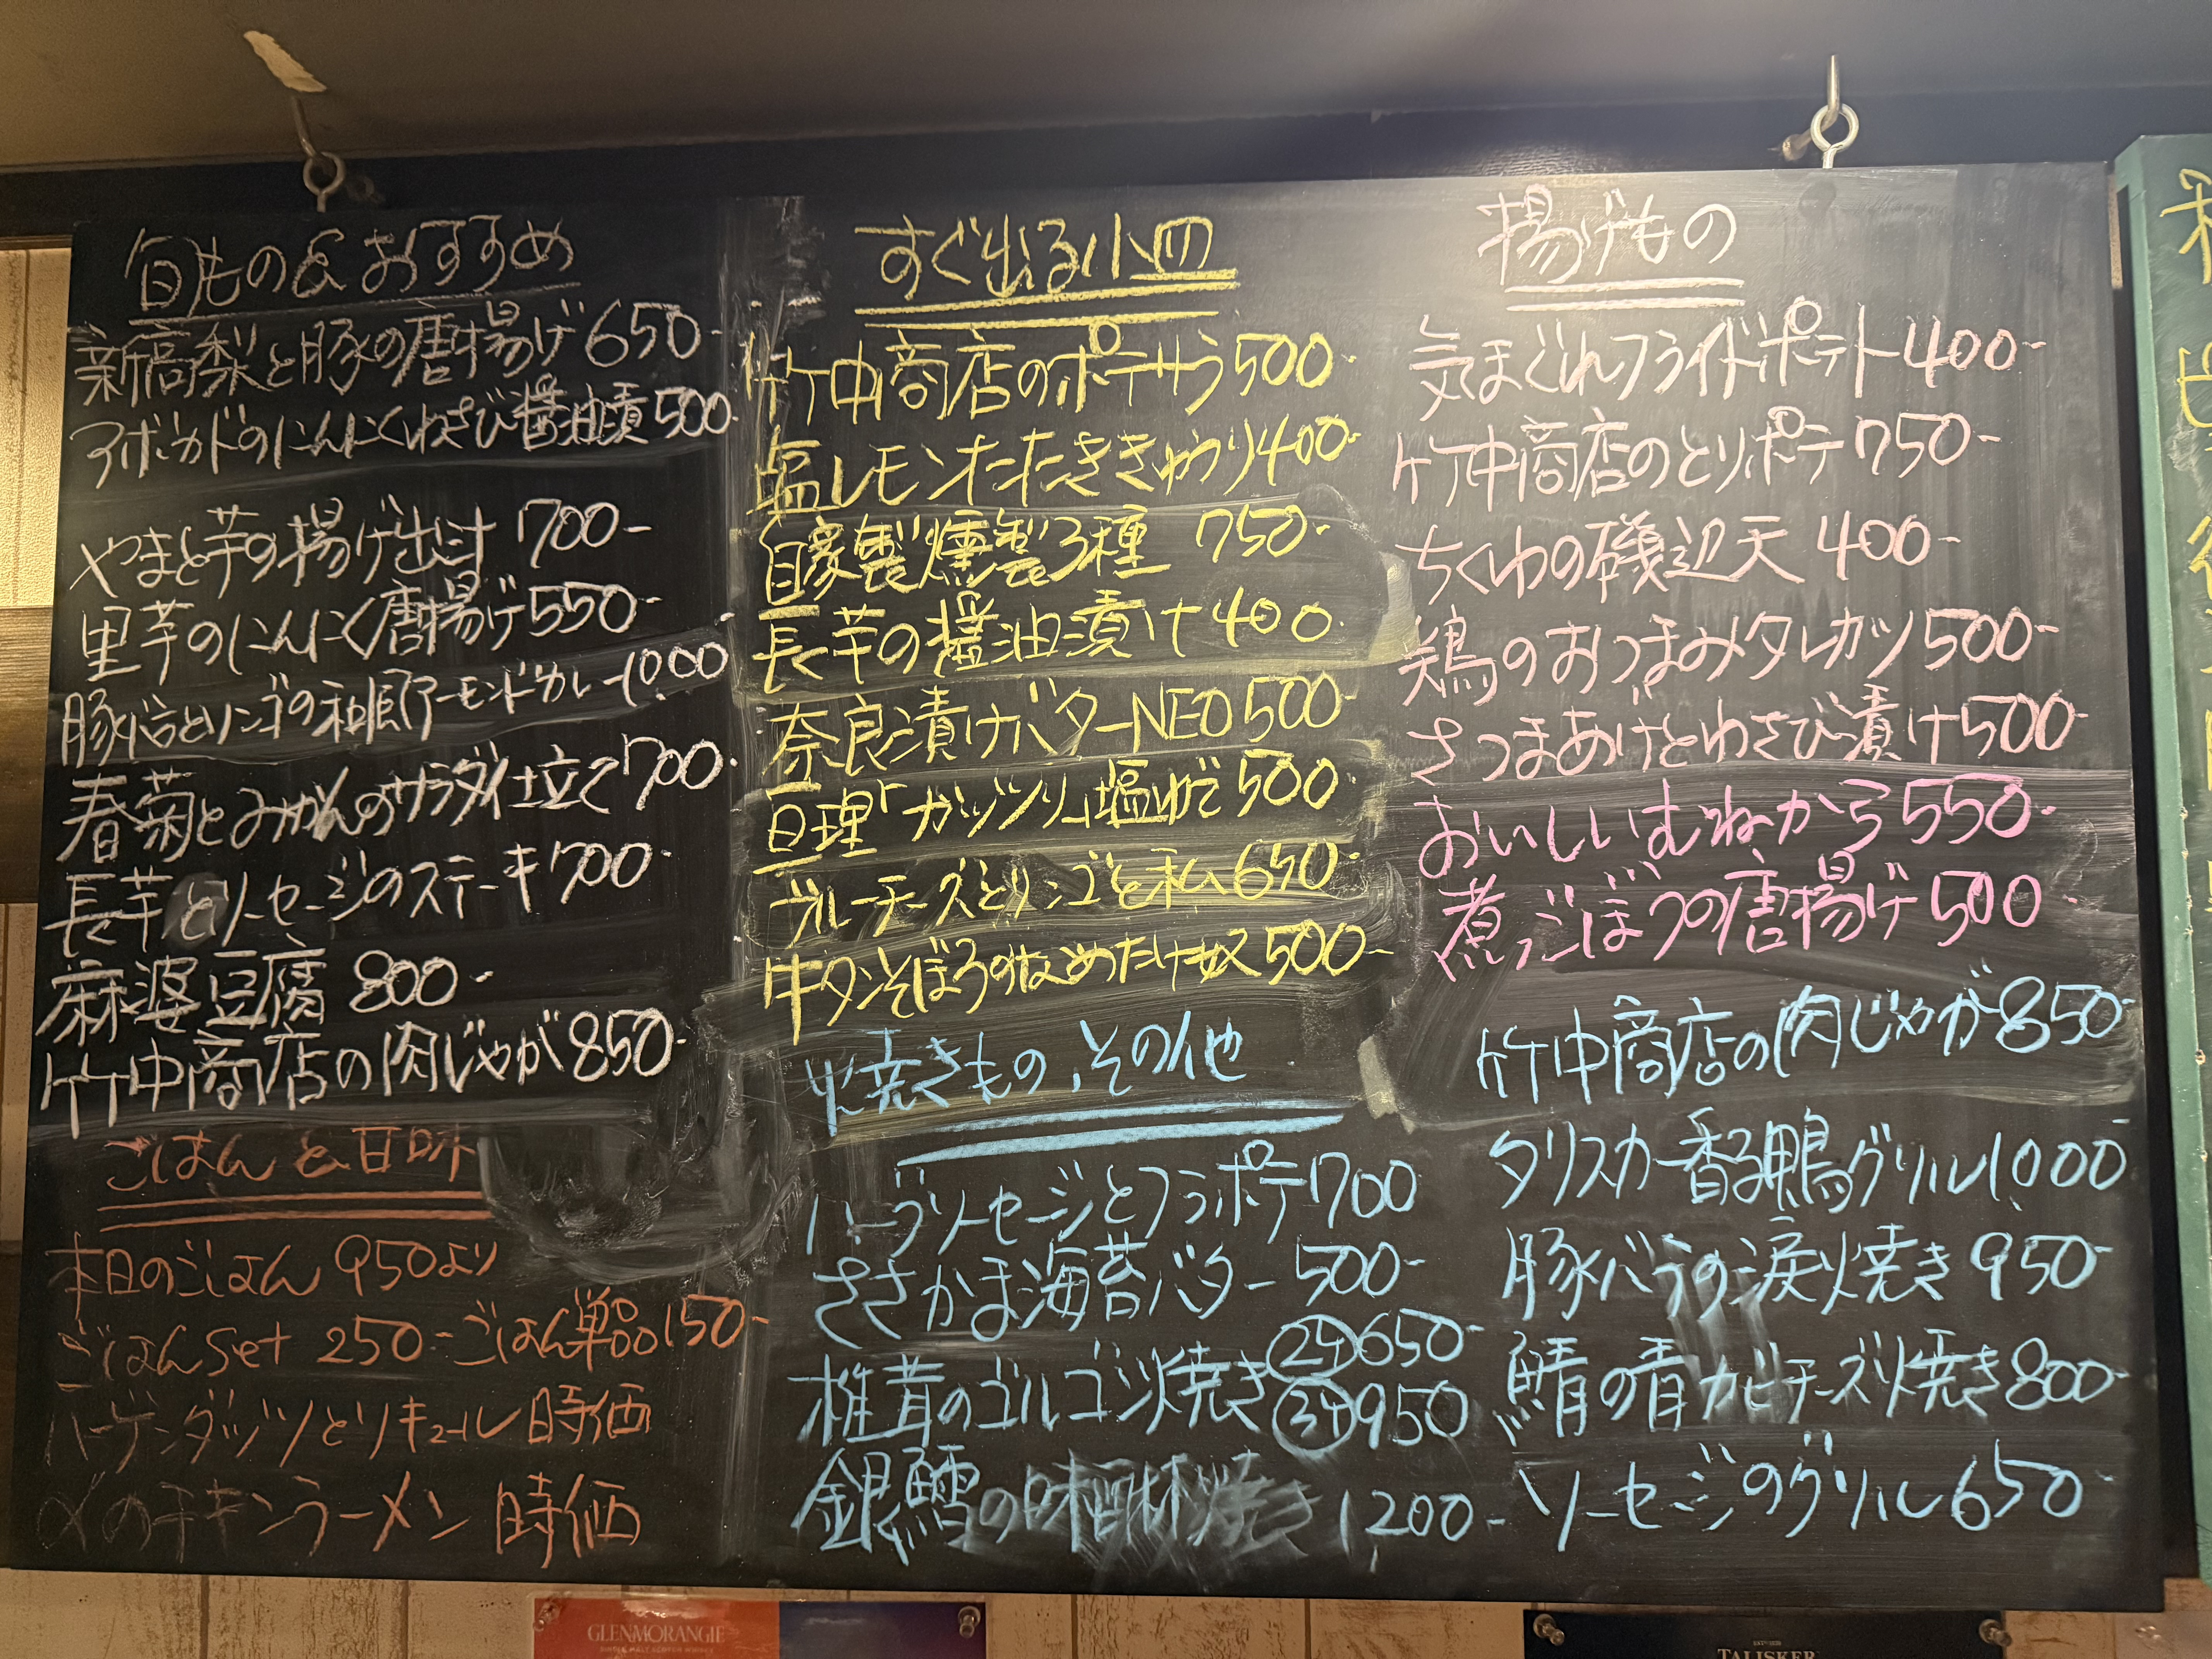 旬もの&おすすめ
新高梨と豚の唐揚げ 650-
アボカドのにんにくわさび醤油漬 500-
やまと芋の揚げ出汁 700-
里芋のにんにく唐揚げ 550-
豚バラとリンゴの和風アーモンドカレー 1000
春菊とみかんのサラダ仕立て 700-
長芋とソーセージのステーキ 700-
麻婆豆腐 800-
竹中商店の肉じゃが 850-
ごはんと甘味
本日のごはん 950より
ごはんset 250- ごはん単品 150-
ハーゲンダッツとリキュール 時価
〆のチキンラーメン 時価
すぐ出る小皿
竹中商店のポテサラ 500-
塩レモンたたききゅうり 400-
自家製燻製3種 750-
長芋の醤油漬け 400-
奈良漬けバターNEO 500-
亘理「ガッツリ」塩ゆで 500-
ブルーチーズとリンゴと私 650-
牛タンそぼろのなめたけ奴 500-
焼きもの、その他
ハーブソーセージとフラポテ 700
ささかま海苔バター 500-
椎茸のゴルゴン焼き ②ケ 650-
③ケ 950
銀鱈の味醂焼き 1200-
揚げもの
気まぐれフライドポテト 400-
竹中商店のとりポテ 750-
ちくわの磯辺天 400-
鶏のおつまみタレカツ 500-
さつまあげとわさび漬け 500-
おいしいむねから 550-
煮ごぼうの唐揚げ 500
竹中商店の肉じゃが 850-
タリスカー香る鴨グリル 1000-
豚バラの涙焼き 950-
鯖の青カビチーズ焼き 800-
ソーセージのグリル 650-
GLENMORANGIE
TALISKER